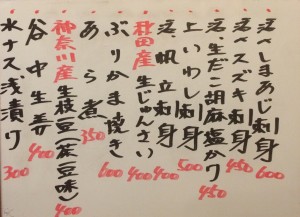 活〆しまあじ刺身 600
活〆スズキ刺身 450
活〆生だこ胡麻塩かけ 450
上いわし刺身 500
活帆立刺身 400
秋田産生じゅんさい 400
ぶりかま焼き 600
あら煮 350
神奈川産生枝豆(茶豆味) 400
谷中生姜 400
水ナス浅漬け 300